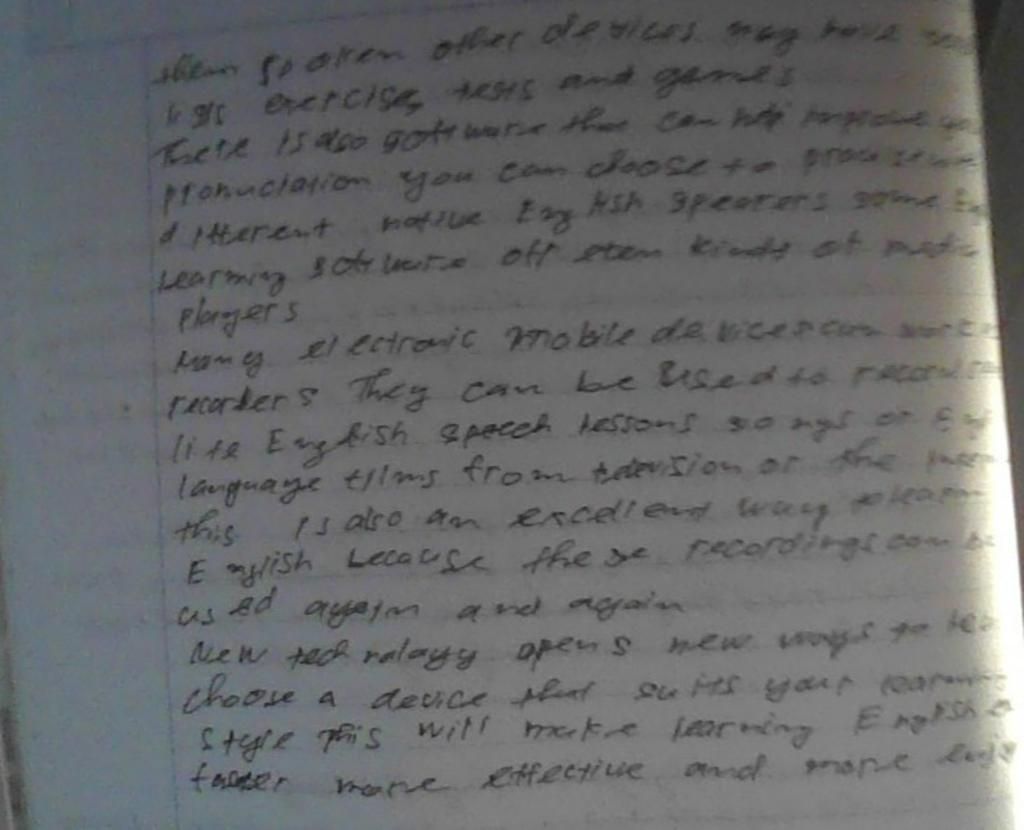 them spoken other devices may have
exercise, tests and games
There is also software that can help improve
pronuclation you can choose to
different native English speakers some
Learning software off
players
Many electronic mobile devices can work
recorders They can be used to record
life English speech lessons songs or
language films from television or the
this is also an excellent way to learn
English because these recordings can be
used again and again
New technalagy opens new ways to
choose a device that suits your learning
style This will make learning English
faster more effective and more